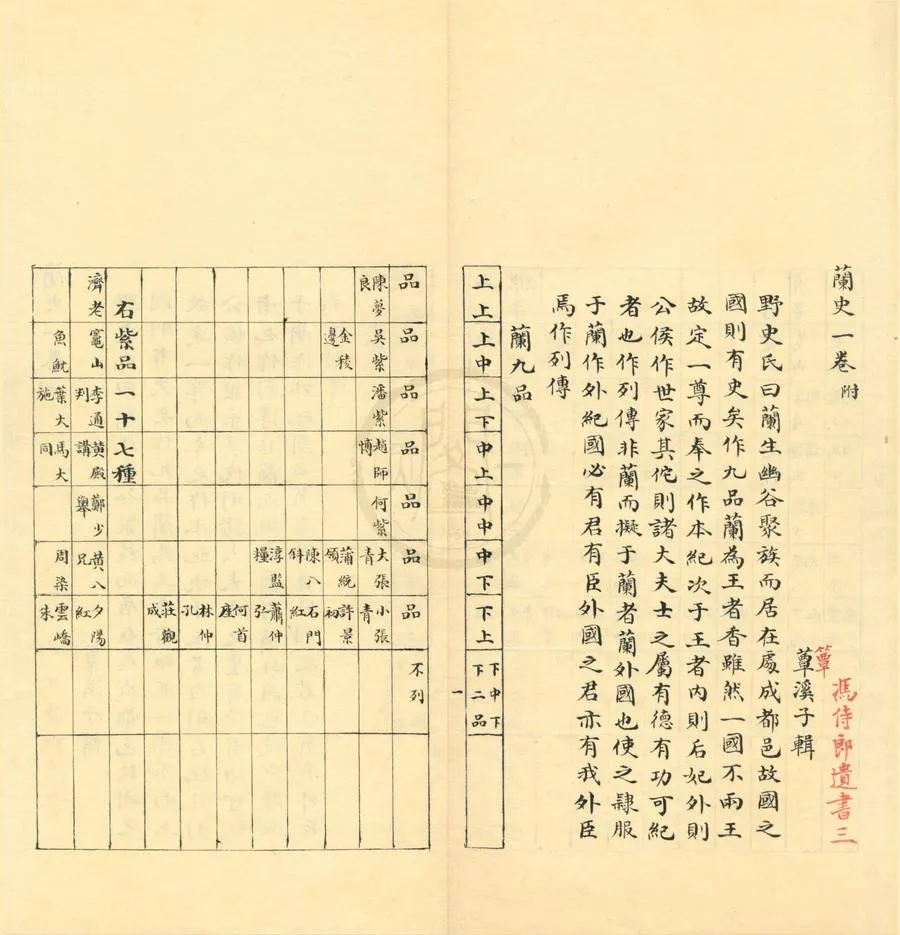 蘭史一卷 附
馮侍郎遺書三
簟
蕈溪子輯
野史民曰蘭生幽谷聚族而居在處成都邑故國之
國則有史矣作九品蘭為王者香雖然一國不兩王
故定一尊而奉之作本紀次于王者内則后妃外則
公侯作世家其佗則諸大夫士之屬有德有功可紀
者也作列傳非蘭而擬于蘭者蘭外國也使之隸服
于蘭作外紀國必有君有臣外國之君亦有我外臣
焉作列傳
蘭九品
上上 上中 上下 中上 中中 中下 下上 下中下下二品
一
品 品 品 品 品 品 品 不列
陳夢良 吳紫 潘紫 趙師博 何紫 大張青 小張青
金稜邊 蒲統領 許景初
陳八斜 石門紅
淳監糧 蕭仲弘
何首座
林仲孔
莊觀成
右紫品一十七種
濟老 竈山 李通判 黃殿講 鄭少舉 黃八兄 夕陽紅
魚魫 葉大施 馬大同 周染 雲嶠朱